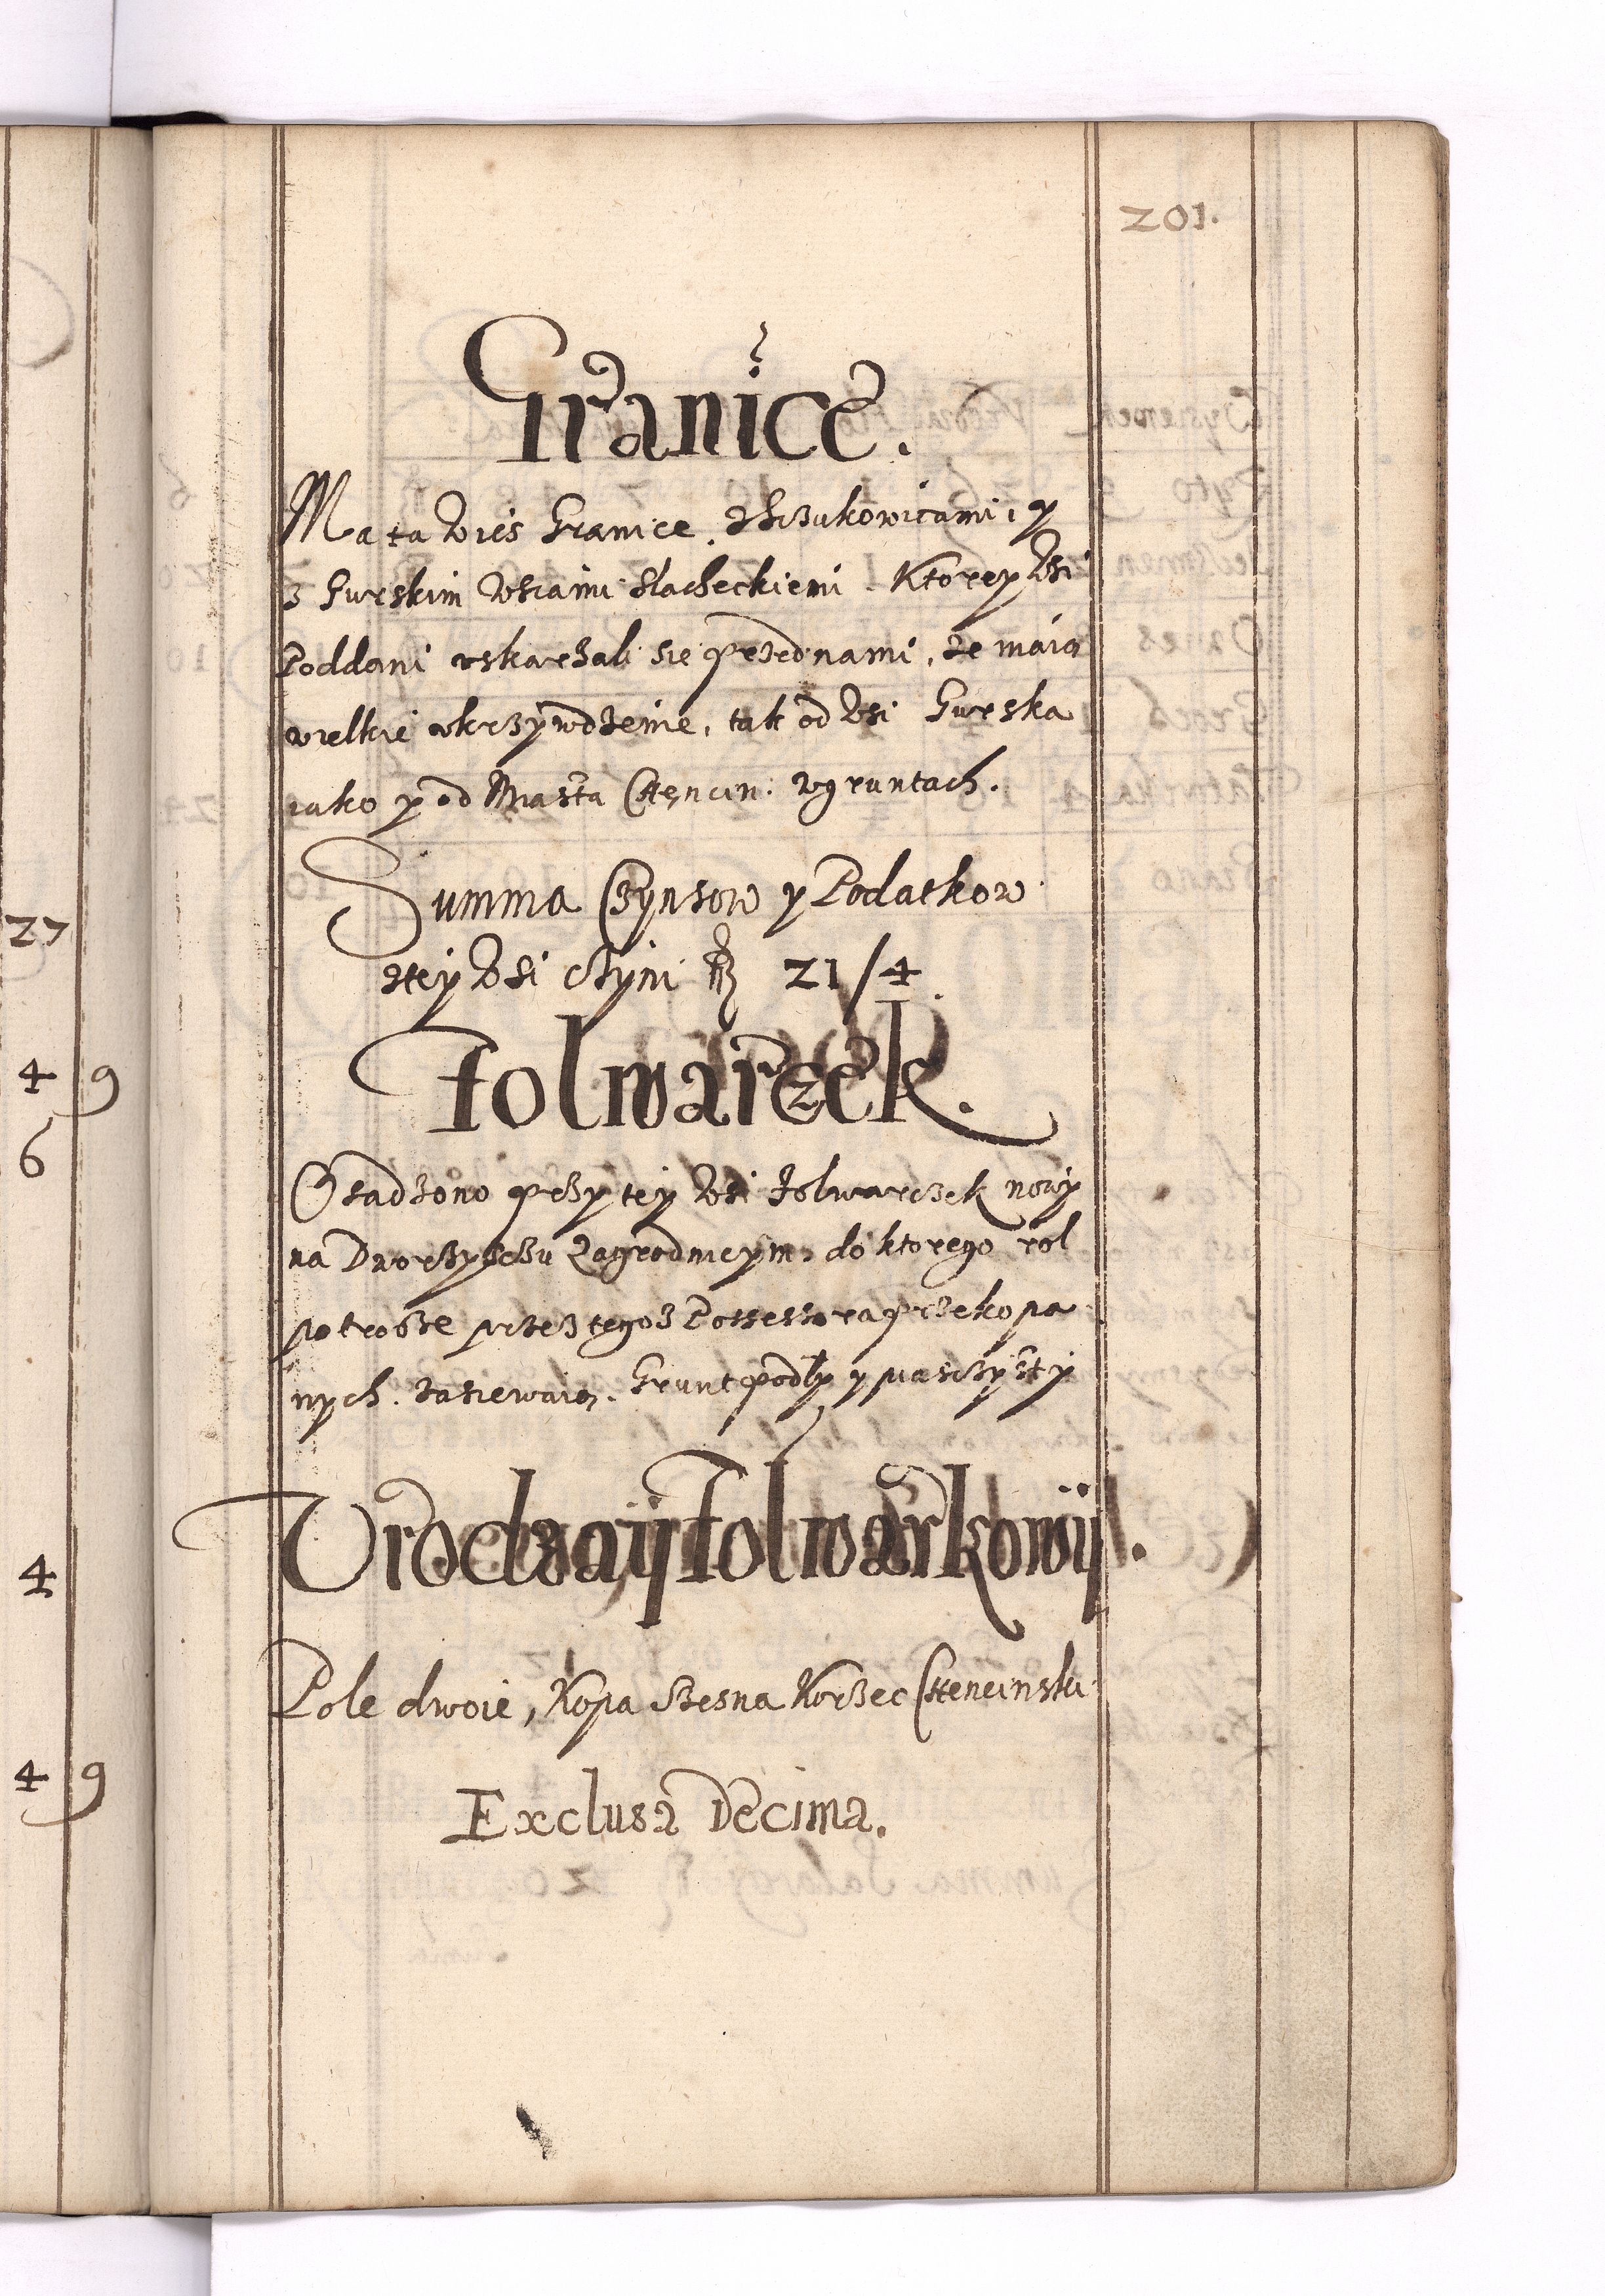 201.
Granice.
Ma ta Wieś Granice, zSzukowicami, y
z Gurskim Wsiami Slacheckiemi. Ktorey Wsi
Poddani uskarzali się przed nami, że maią
wielkie ukrzywdzenie, tak od Wsi Gurska
iako y od Miasta Chęncin: w gruntach.
Summa Czynszow y Podatkow
z tey Wsi czyni 21/4
Folwarczek.
Osadzono przy tey Wsi Folwarczek nowy
na Dworzyszczu Zagrodniczym, do ktorego rol
potrosze przez tegoż Possessora przekopa
nych. zasiewaią. Grunt podły y piasczysty
Urodzay Folwarkowy.
Pole dwoie, Kopa Korzec Chencinski
Exclusa Decima.
27
4 9
6
4
4 9